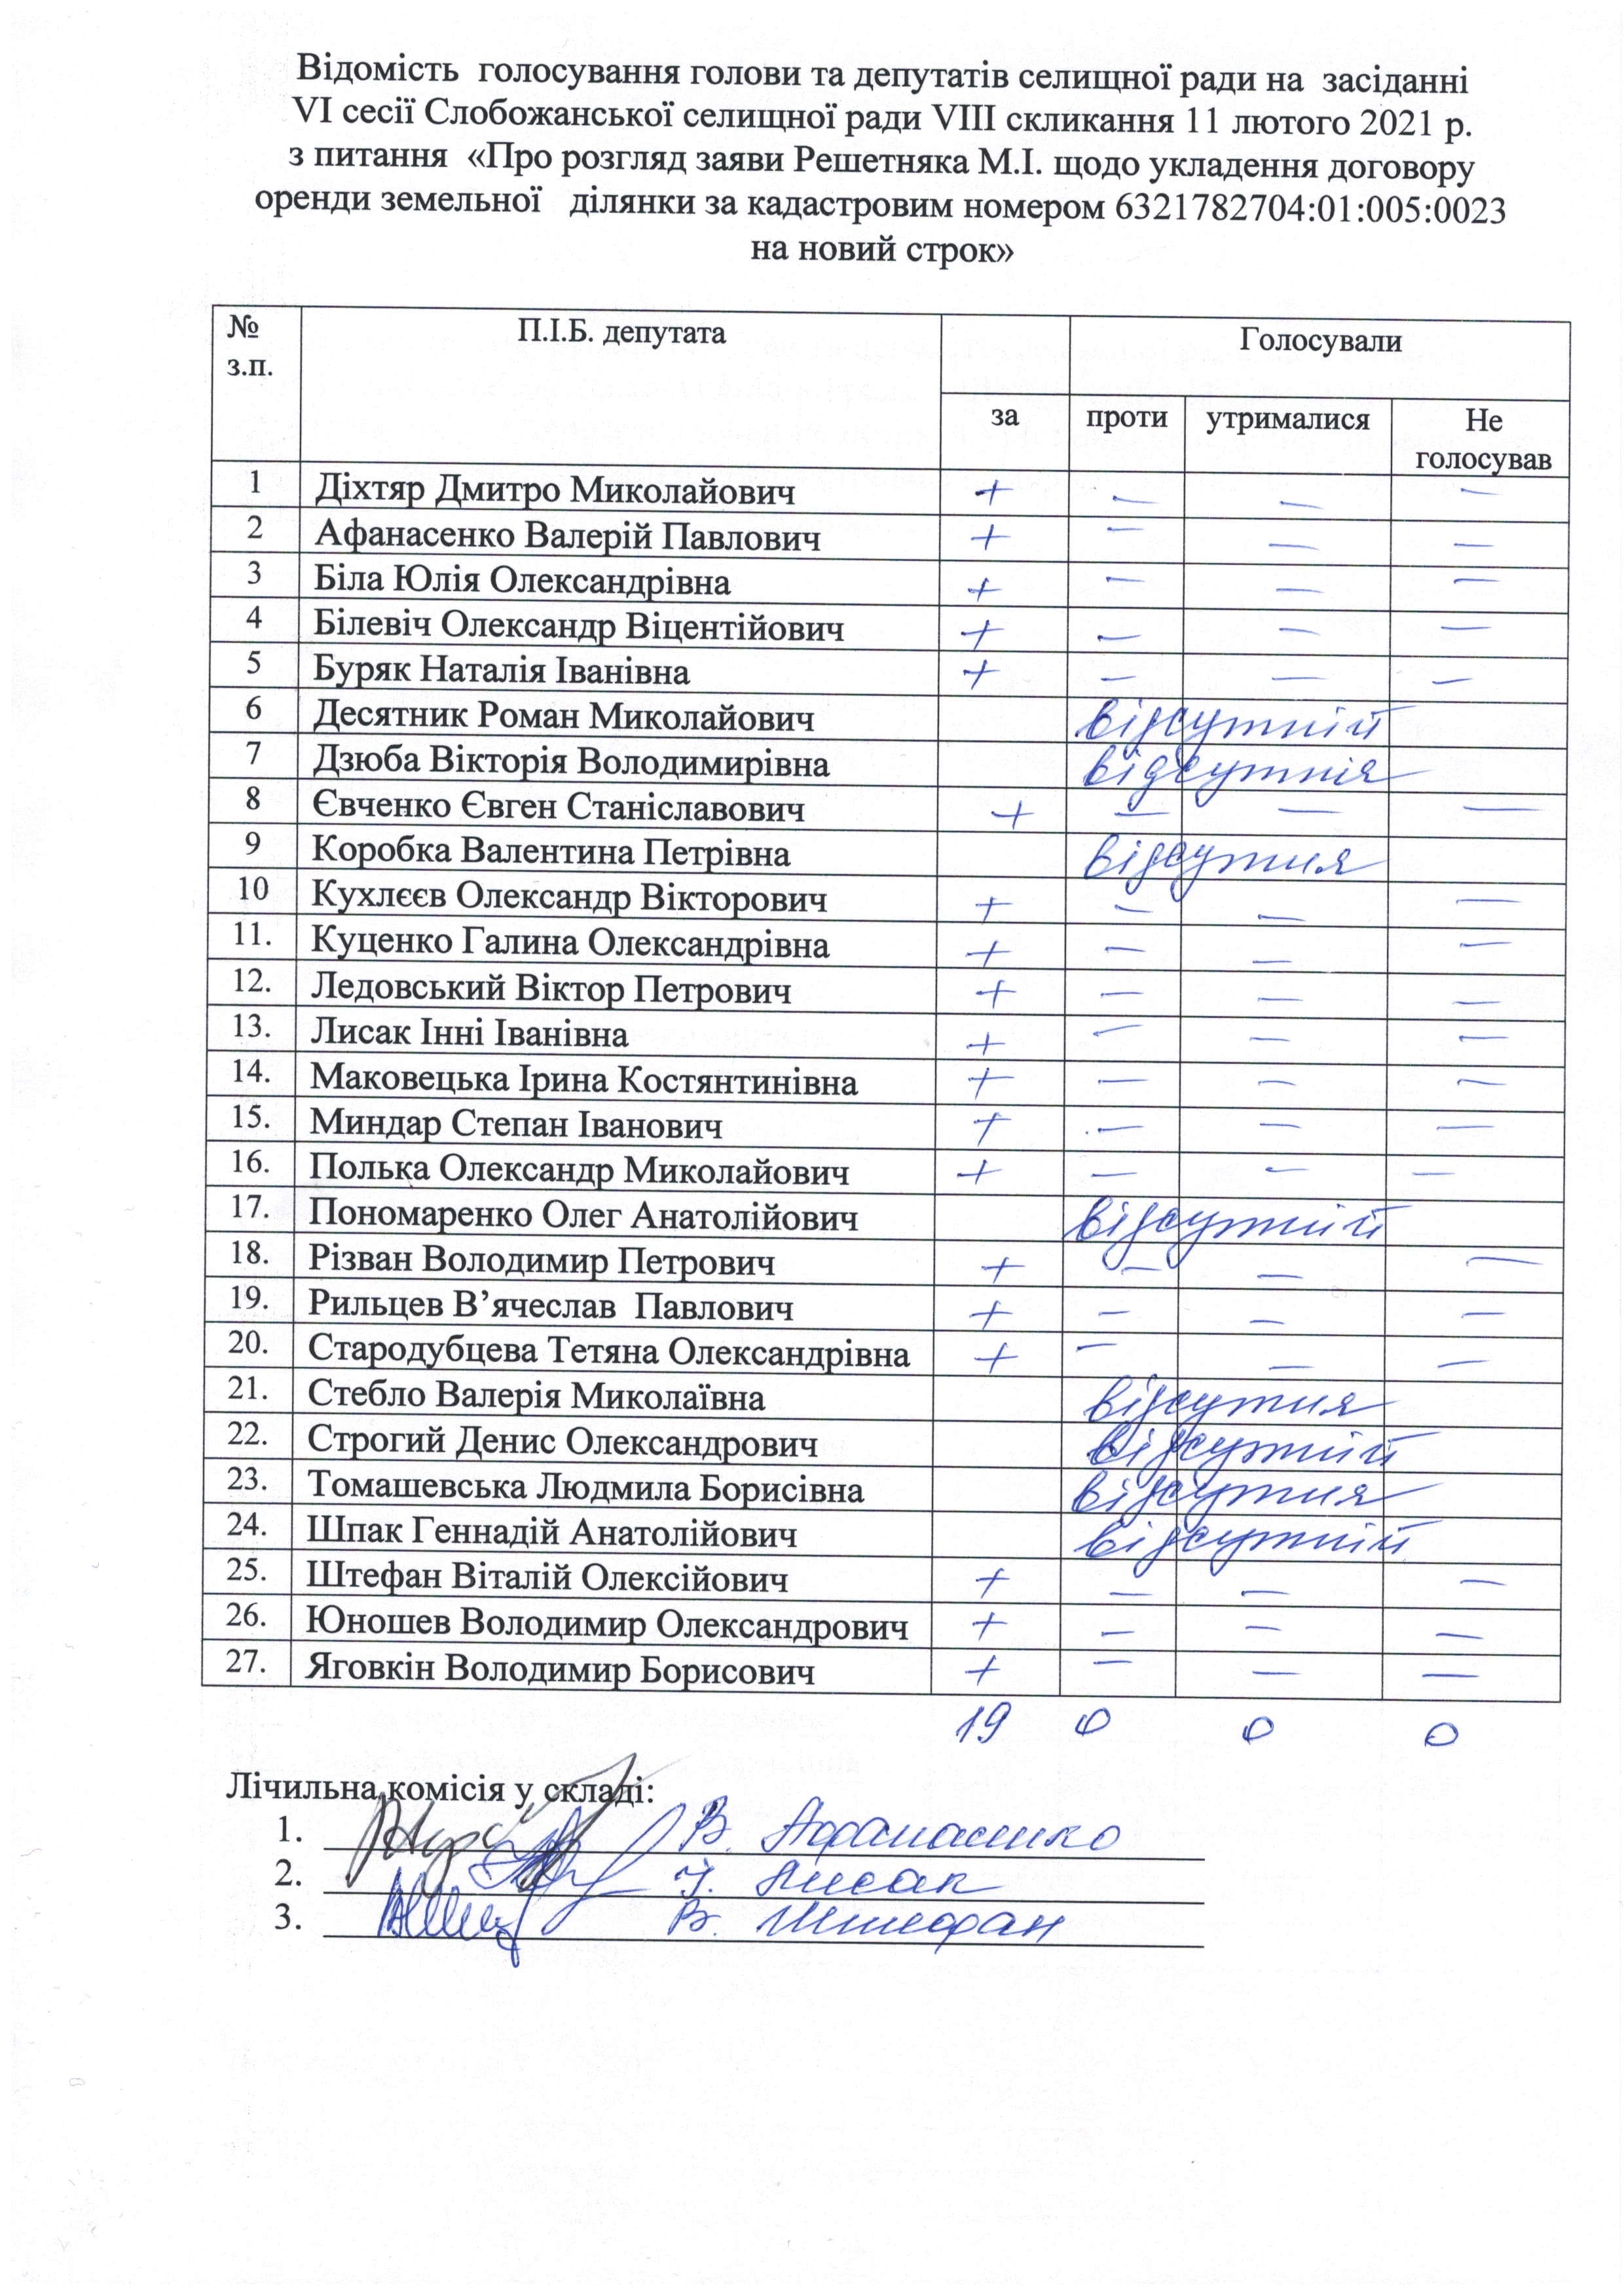 Відомість голосування голови та депутатів селищної ради на засіданні
VI сесії Слобожанської селищної ради VIII скликання 11 лютого 2021 р.
з питання «Про розгляд заяви Решетняка М.І. щодо укладення договору
оренди земельної ділянки за кадастровим номером 6321782704:01:005:0023
на новий строк»
№ з.п. П.І.Б. депутата Голосували
за проти утрималися Не голосував
1 Діхтяр Дмитро Миколайович + — — —
2 Афанасенко Валерій Павлович + — — —
3 Біла Юлія Олександрівна + — — —
4 Білевіч Олександр Віцентійович + — — —
5 Буряк Наталія Іванівна + — — —
6 Десятник Роман Миколайович відсутній
7 Дзюба Вікторія Володимирівна відсутня
8 Євченко Євген Станіславович + — — —
9 Коробка Валентина Петрівна відсутня
10 Кухлєєв Олександр Вікторович + — — —
11. Куценко Галина Олександрівна + — — —
12. Ледовський Віктор Петрович + — — —
13. Лисак Інні Іванівна + — — —
14. Маковецька Ірина Костянтинівна + — — —
15. Миндар Степан Іванович + — — —
16. Полька Олександр Миколайович + — — —
17. Пономаренко Олег Анатолійович відсутній
18. Різван Володимир Петрович + — — —
19. Рильцев В’ячеслав Павлович + — — —
20. Стародубцева Тетяна Олександрівна + — — —
21. Стебло Валерія Миколаївна відсутня
22. Строгий Денис Олександрович відсутній
23. Томашевська Людмила Борисівна відсутня
24. Шпак Геннадій Анатолійович відсутній
25. Штефан Віталій Олексійович + — — —
26. Юношев Володимир Олександрович + — — —
27. Яговкін Володимир Борисович + — — —
19 0 0 0
Лічильна комісія у складі:
1. В. Афанасенко
2. І. Лисак
3. В. Штефан